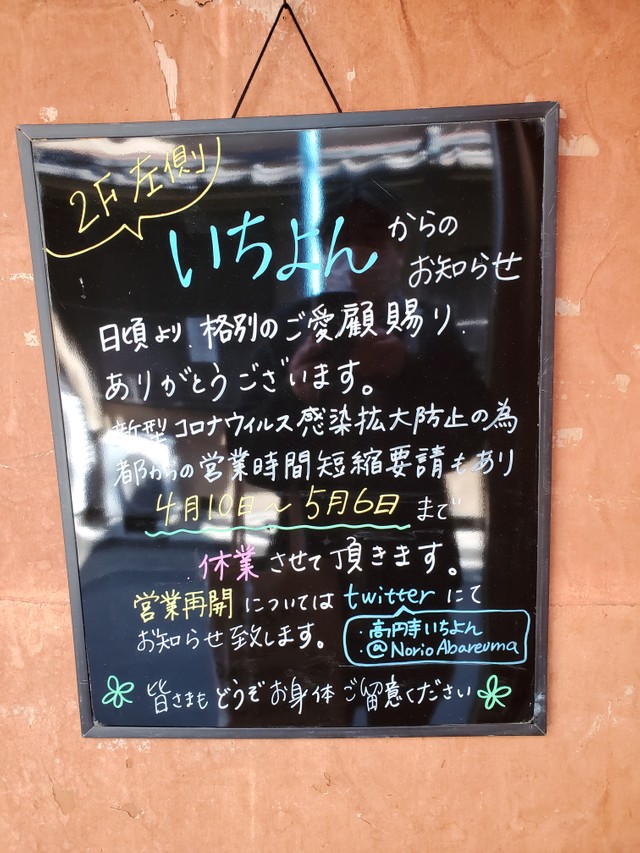 2F 左側
いちよん
からの
お知らせ
日頃より、格別のご愛顧賜り
ありがとうございます。
新型コロナウィルス感染拡大防止の為
都からの営業時間短縮要請もあり
4月10日～5月6日まで
休業させて頂きます。
営業再開については twitter にて
お知らせ致します。
・高円寺いちよん
・@NorioAbareuma
皆さまもどうぞお身体ご留意ください